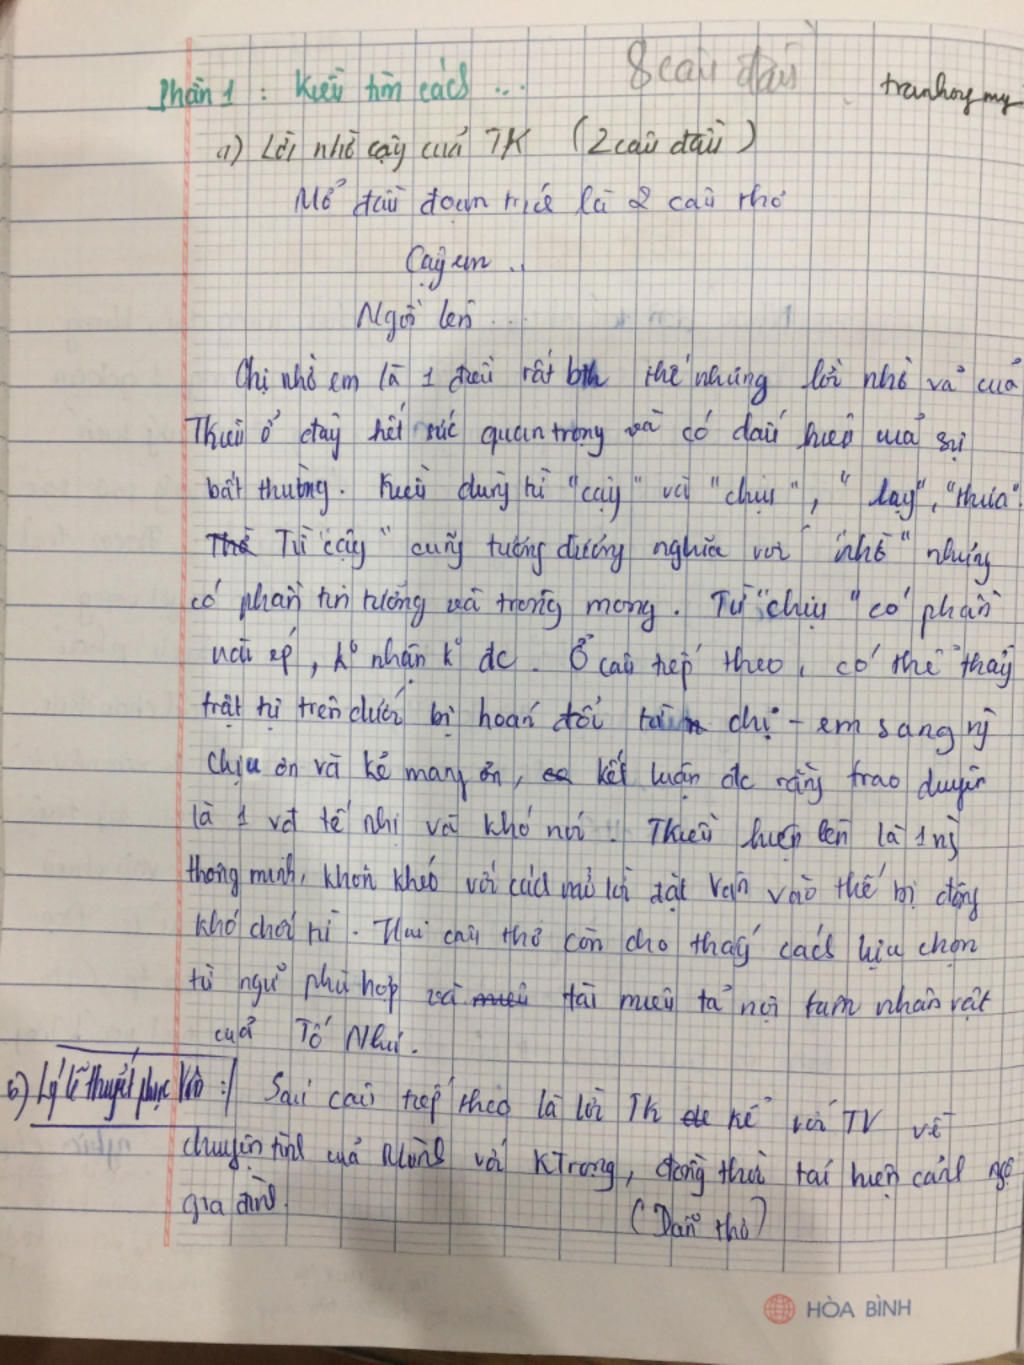 8 câu đầu
tranhoymy
Phần 1 : Kiều tìm cách ...
a) Lời nhờ cậy của TK (2 câu đầu)
Mở đầu đoạn trích là 2 câu thơ
Cậy em ..
Ngồi lên ...
Chị nhờ em là 1 điều rất bth thế nhưng lời nhờ vả của
TKiều ở đây hết sức quan trọng và có dấu hiệu của sự
bất thường. Kiều dùng từ "cậy" và "chịu", "lạy", "thưa".
Từ "cậy" cũng tương đương nghĩa với "nhờ" nhưng
có phần tin tưởng và trông mong. Từ "chịu" có phần
nài ép, k° nhận k° đc. Ở câu tiếp theo, có thể thấy
trật tự trên dưới bị hoán đổi từ chị - em sang ng
chịu ơn và kẻ mang ơn, kết luận đc rằng trao duyên
là 1 vđ tế nhị và khó nói. TKiều hiện lên là 1 ng
thông minh, khôn khéo với cách mở lời đặt Vân vào thế bị động
khó chối từ. Hai câu thơ còn cho thấy cách lựa chọn
từ ngữ phù hợp và tài miêu tả nội tâm nhân vật
của Tố Như.
b) Lý lẽ thuyết phục Vân :/ Sáu câu tiếp theo là lời TK kể với TV về
chuyện tình của mình với KTrọng, đồng thời tái hiện cảnh ngộ
gia đình.
(Dẫn thơ)
HÒA BÌNH